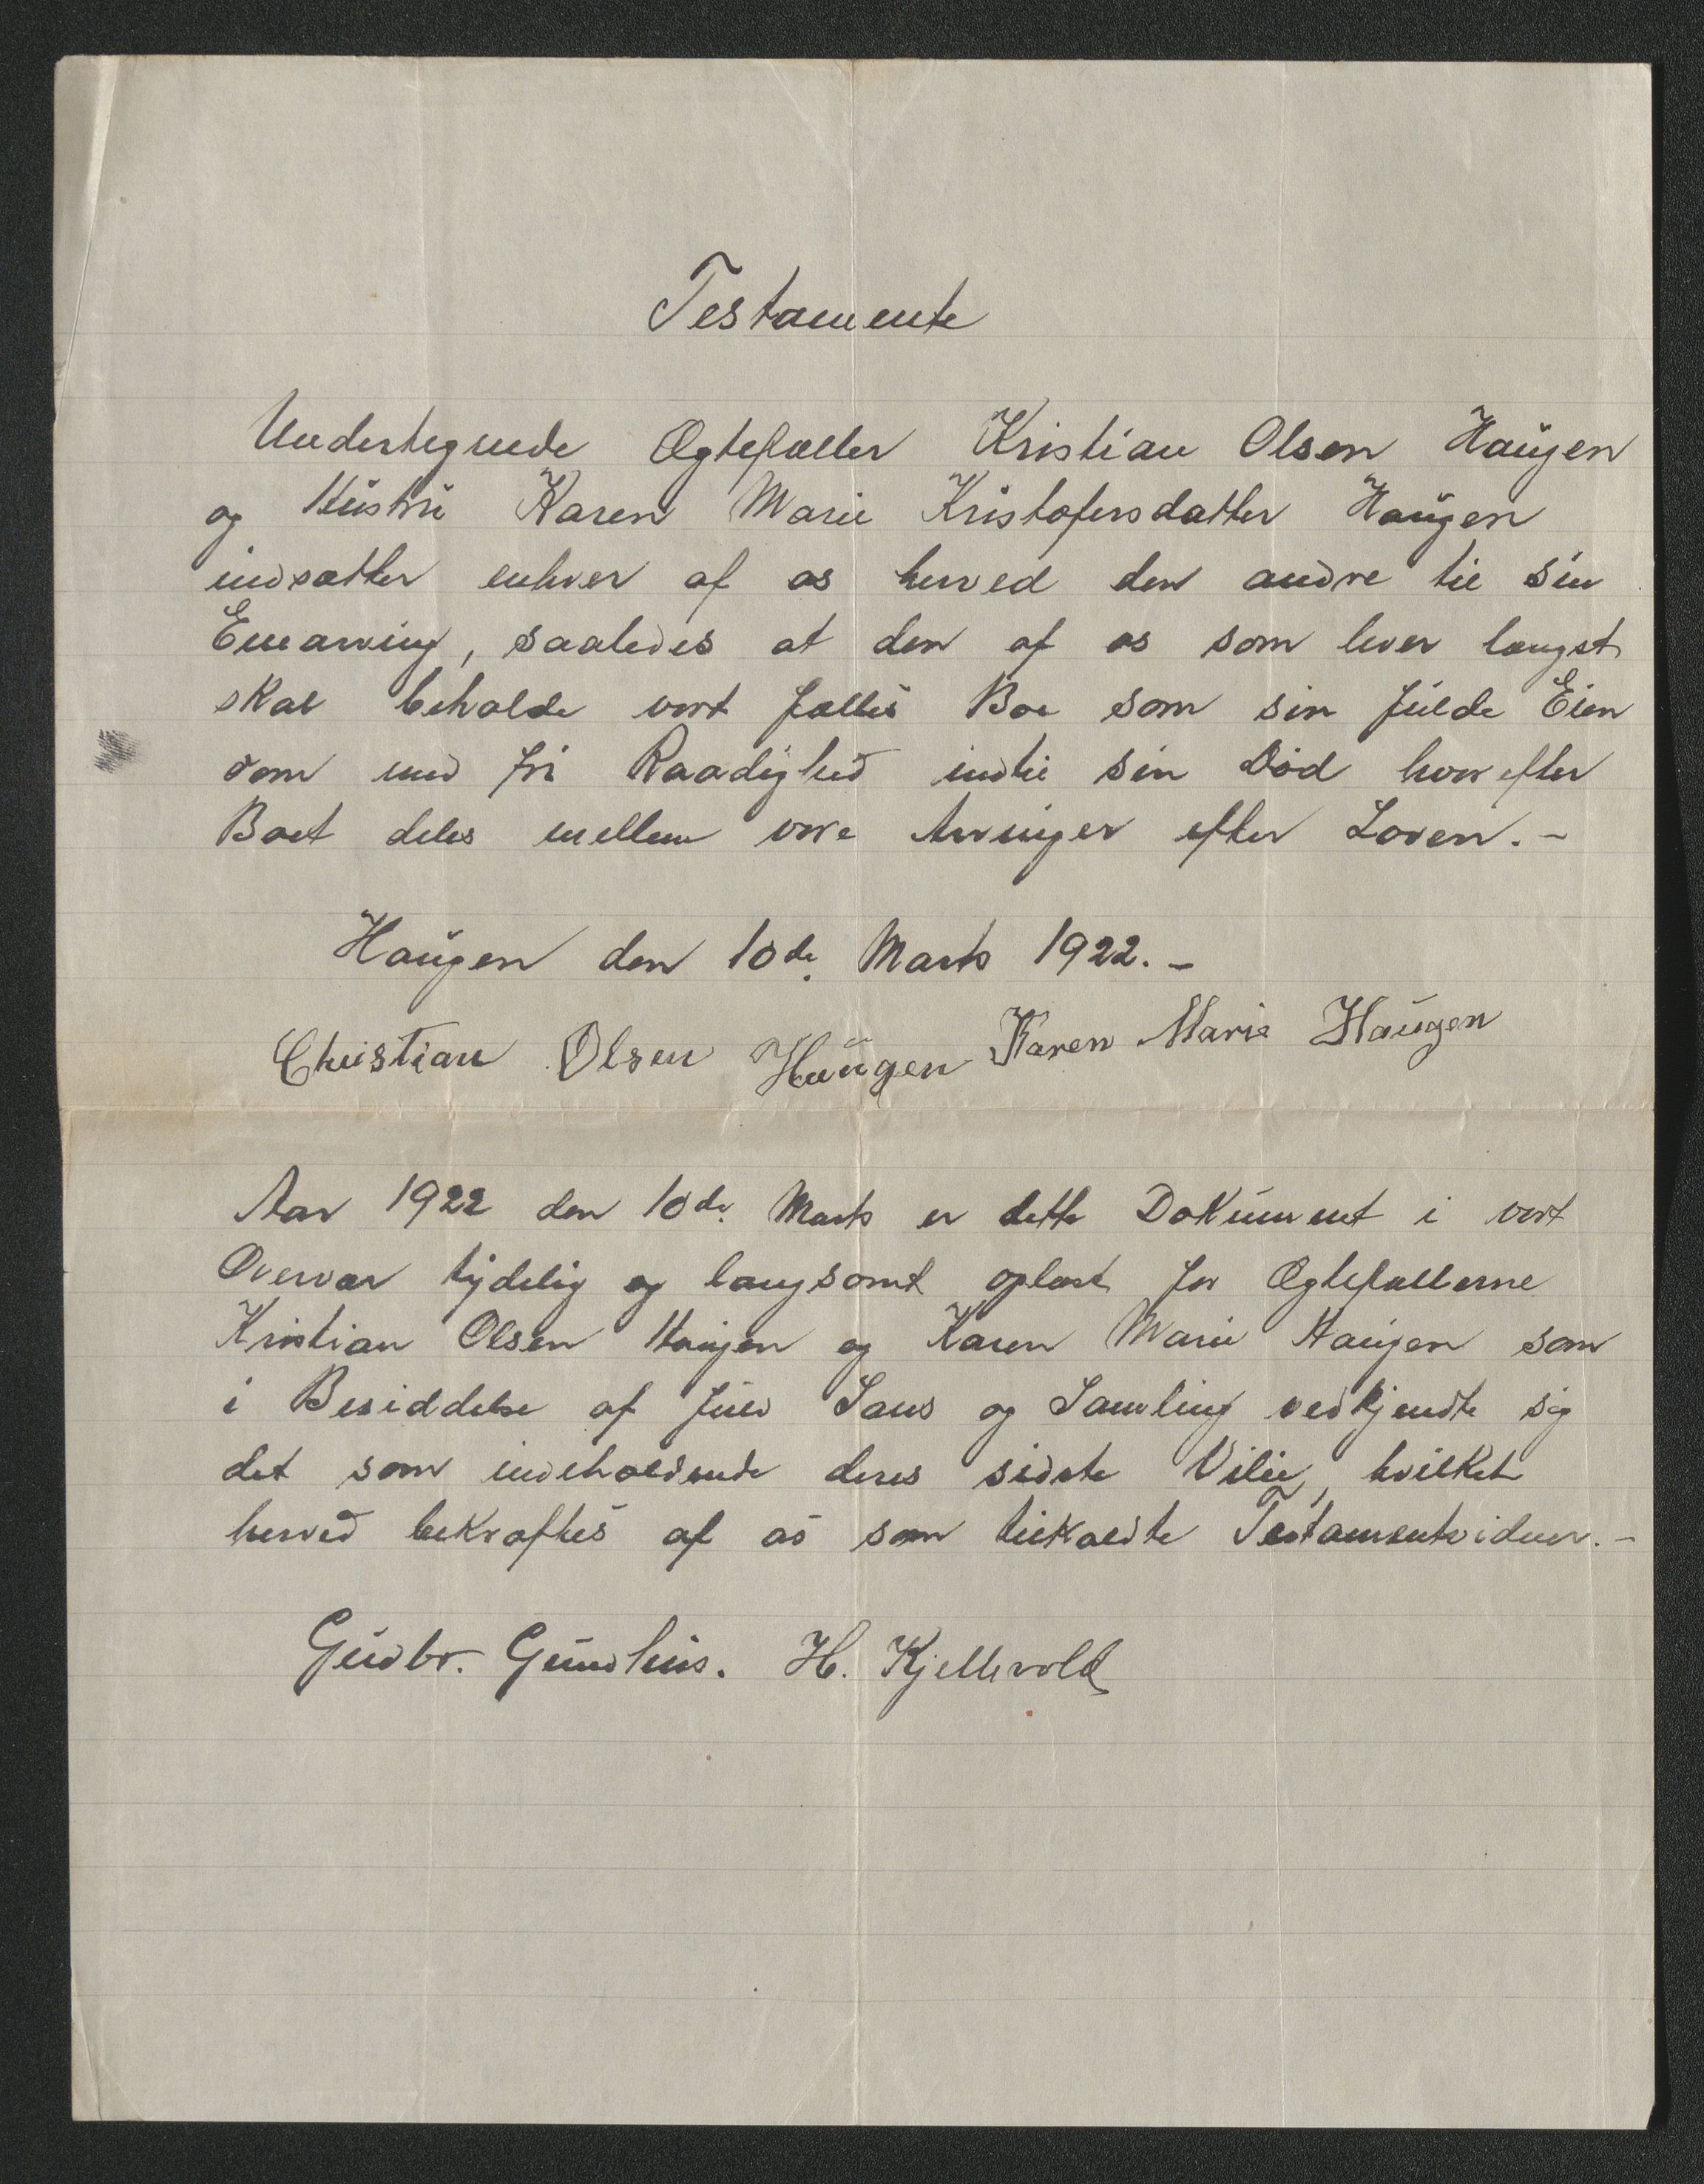 Testamente
Undertegnede Ægtefæller Kristian Olsen Haugen
og Hustru Karen Marie Kristofersdatter Haugen
indsætter enhver af os herved den andre til sin
Enearving, saaledes at den af os som lever længst
skal beholde vort fælles Boe som sin fulde Eien
dom med fri Raadighed indtil sin Død hvorefter
Boet deles mellem vore Arvinger efter Loven. -
Haugen den 10de Marts 1922. -
Christian Olsen Haugen Karen Marie Haugen
Aar 1922 den 10de Marts er dette Dokument i vort
Overvær tydelig og langsomt oplæst for Ægtefællerne
Kristian Olsen Haugen og Karen Marie Haugen som
i Besiddelse af fuld Sans og Samling vedkjendte sig
det som indeholdende deres sidste Vilie, hvilket
herved bekræftes af os som tilkaldte Testamentvidner. -
Gudbr. Gundhus. H. Kjellevold